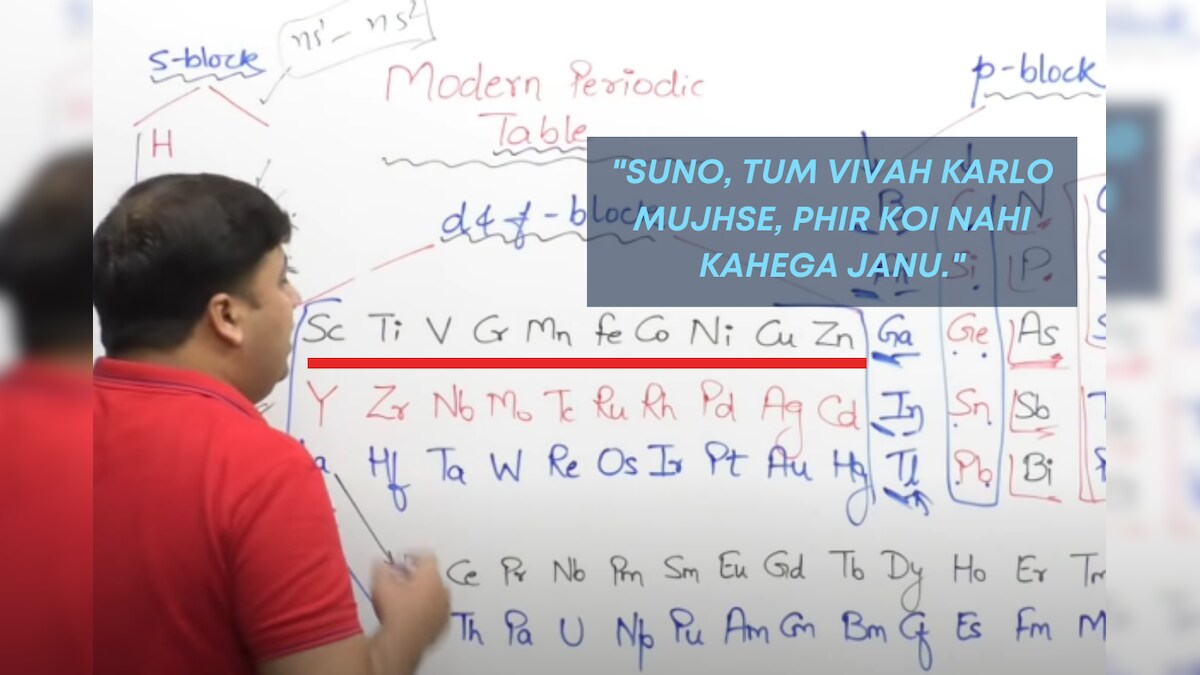 ns¹ - ns²
s-block
Modern Periodic
Table
p-block
H
"SUNO, TUM VIVAH KARLO
MUJHSE, PHIR KOI NAHI
KAHEGA JANU."
d & f - block
B N
Si P
Sc Ti V Cr Mn Fe Co Ni Cu Zn Ga Ge As
Y Zr Nb Mo Tc Ru Rh Pd Ag Cd In Sn Sb
a Hf Ta W Re Os Ir Pt Au Hg Tl Pb Bi
Ce Pr Nb Pm Sm Eu Gd Tb Dy Ho Er Tm
Th Pa U Np Pu Am Cm Bm Cf Es Fm M